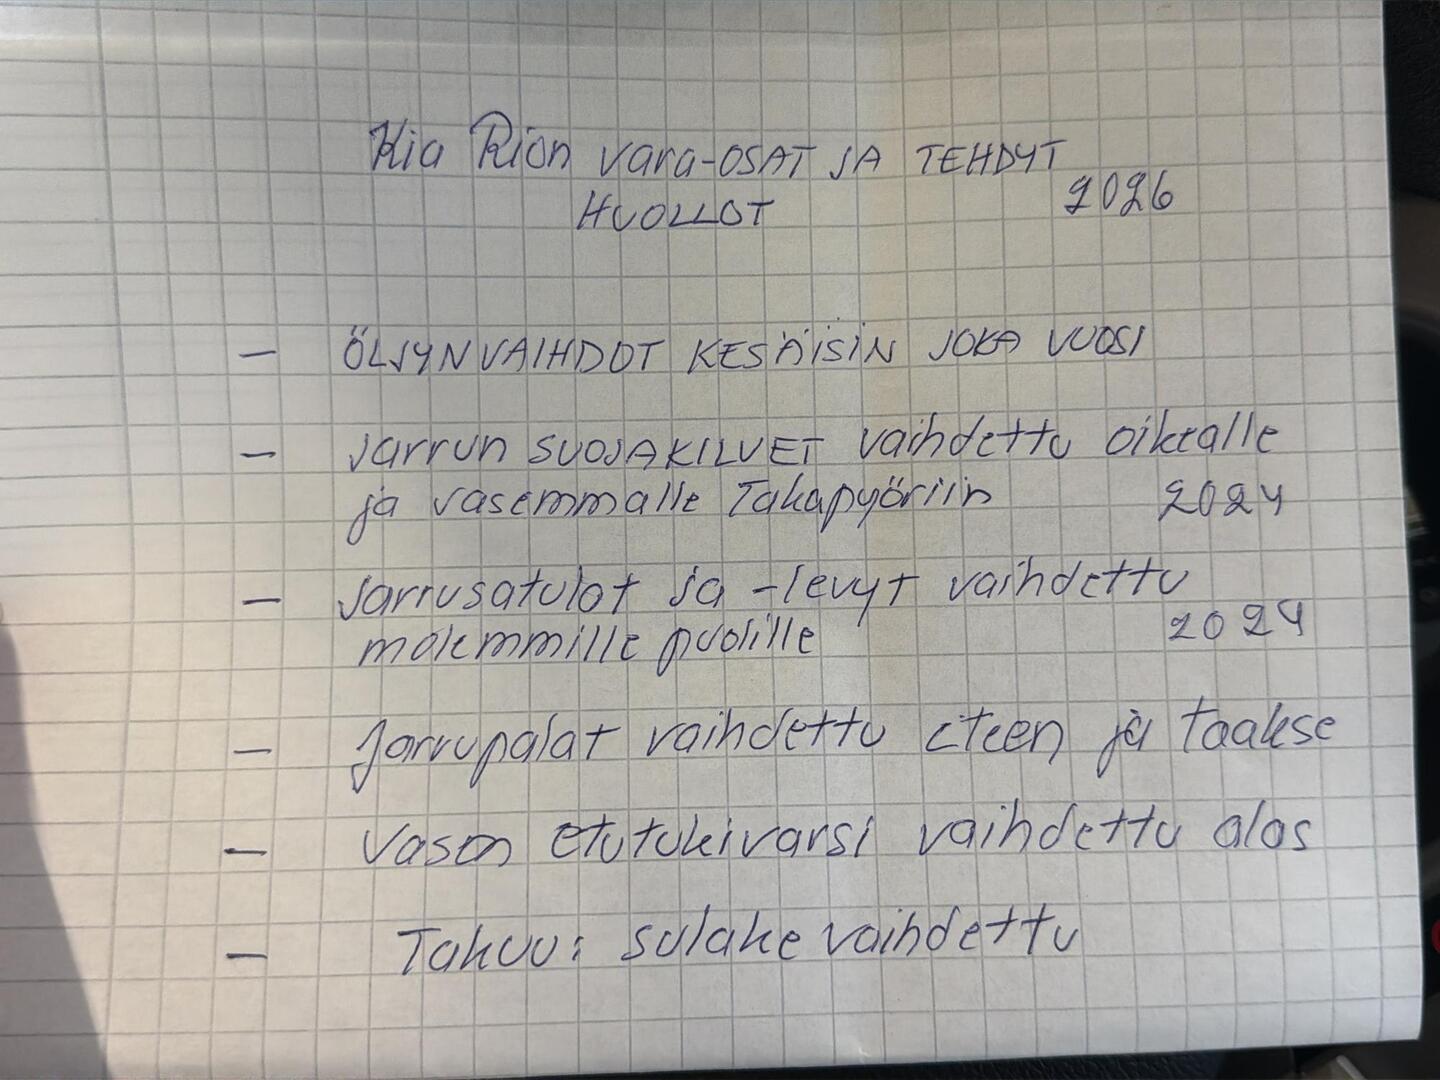 Kia Rion vara-OSAT JA TEHDYT
HUOLLOT 2026
— ÖLJYNVAIHDOT KESÄISIN JOKA VUOSI
— Jarrun SUOJAKILVET vaihdettu oikealle
ja vasemmalle Takapyöriin 2024
— Jarrusatulat ja -levyt vaihdettu
molemmille puolille 2024
— Jarrupalat vaihdettu eteen ja taakse
— Vasen etutukivarsi vaihdettu alas
— Takuu: sulake vaihdettu